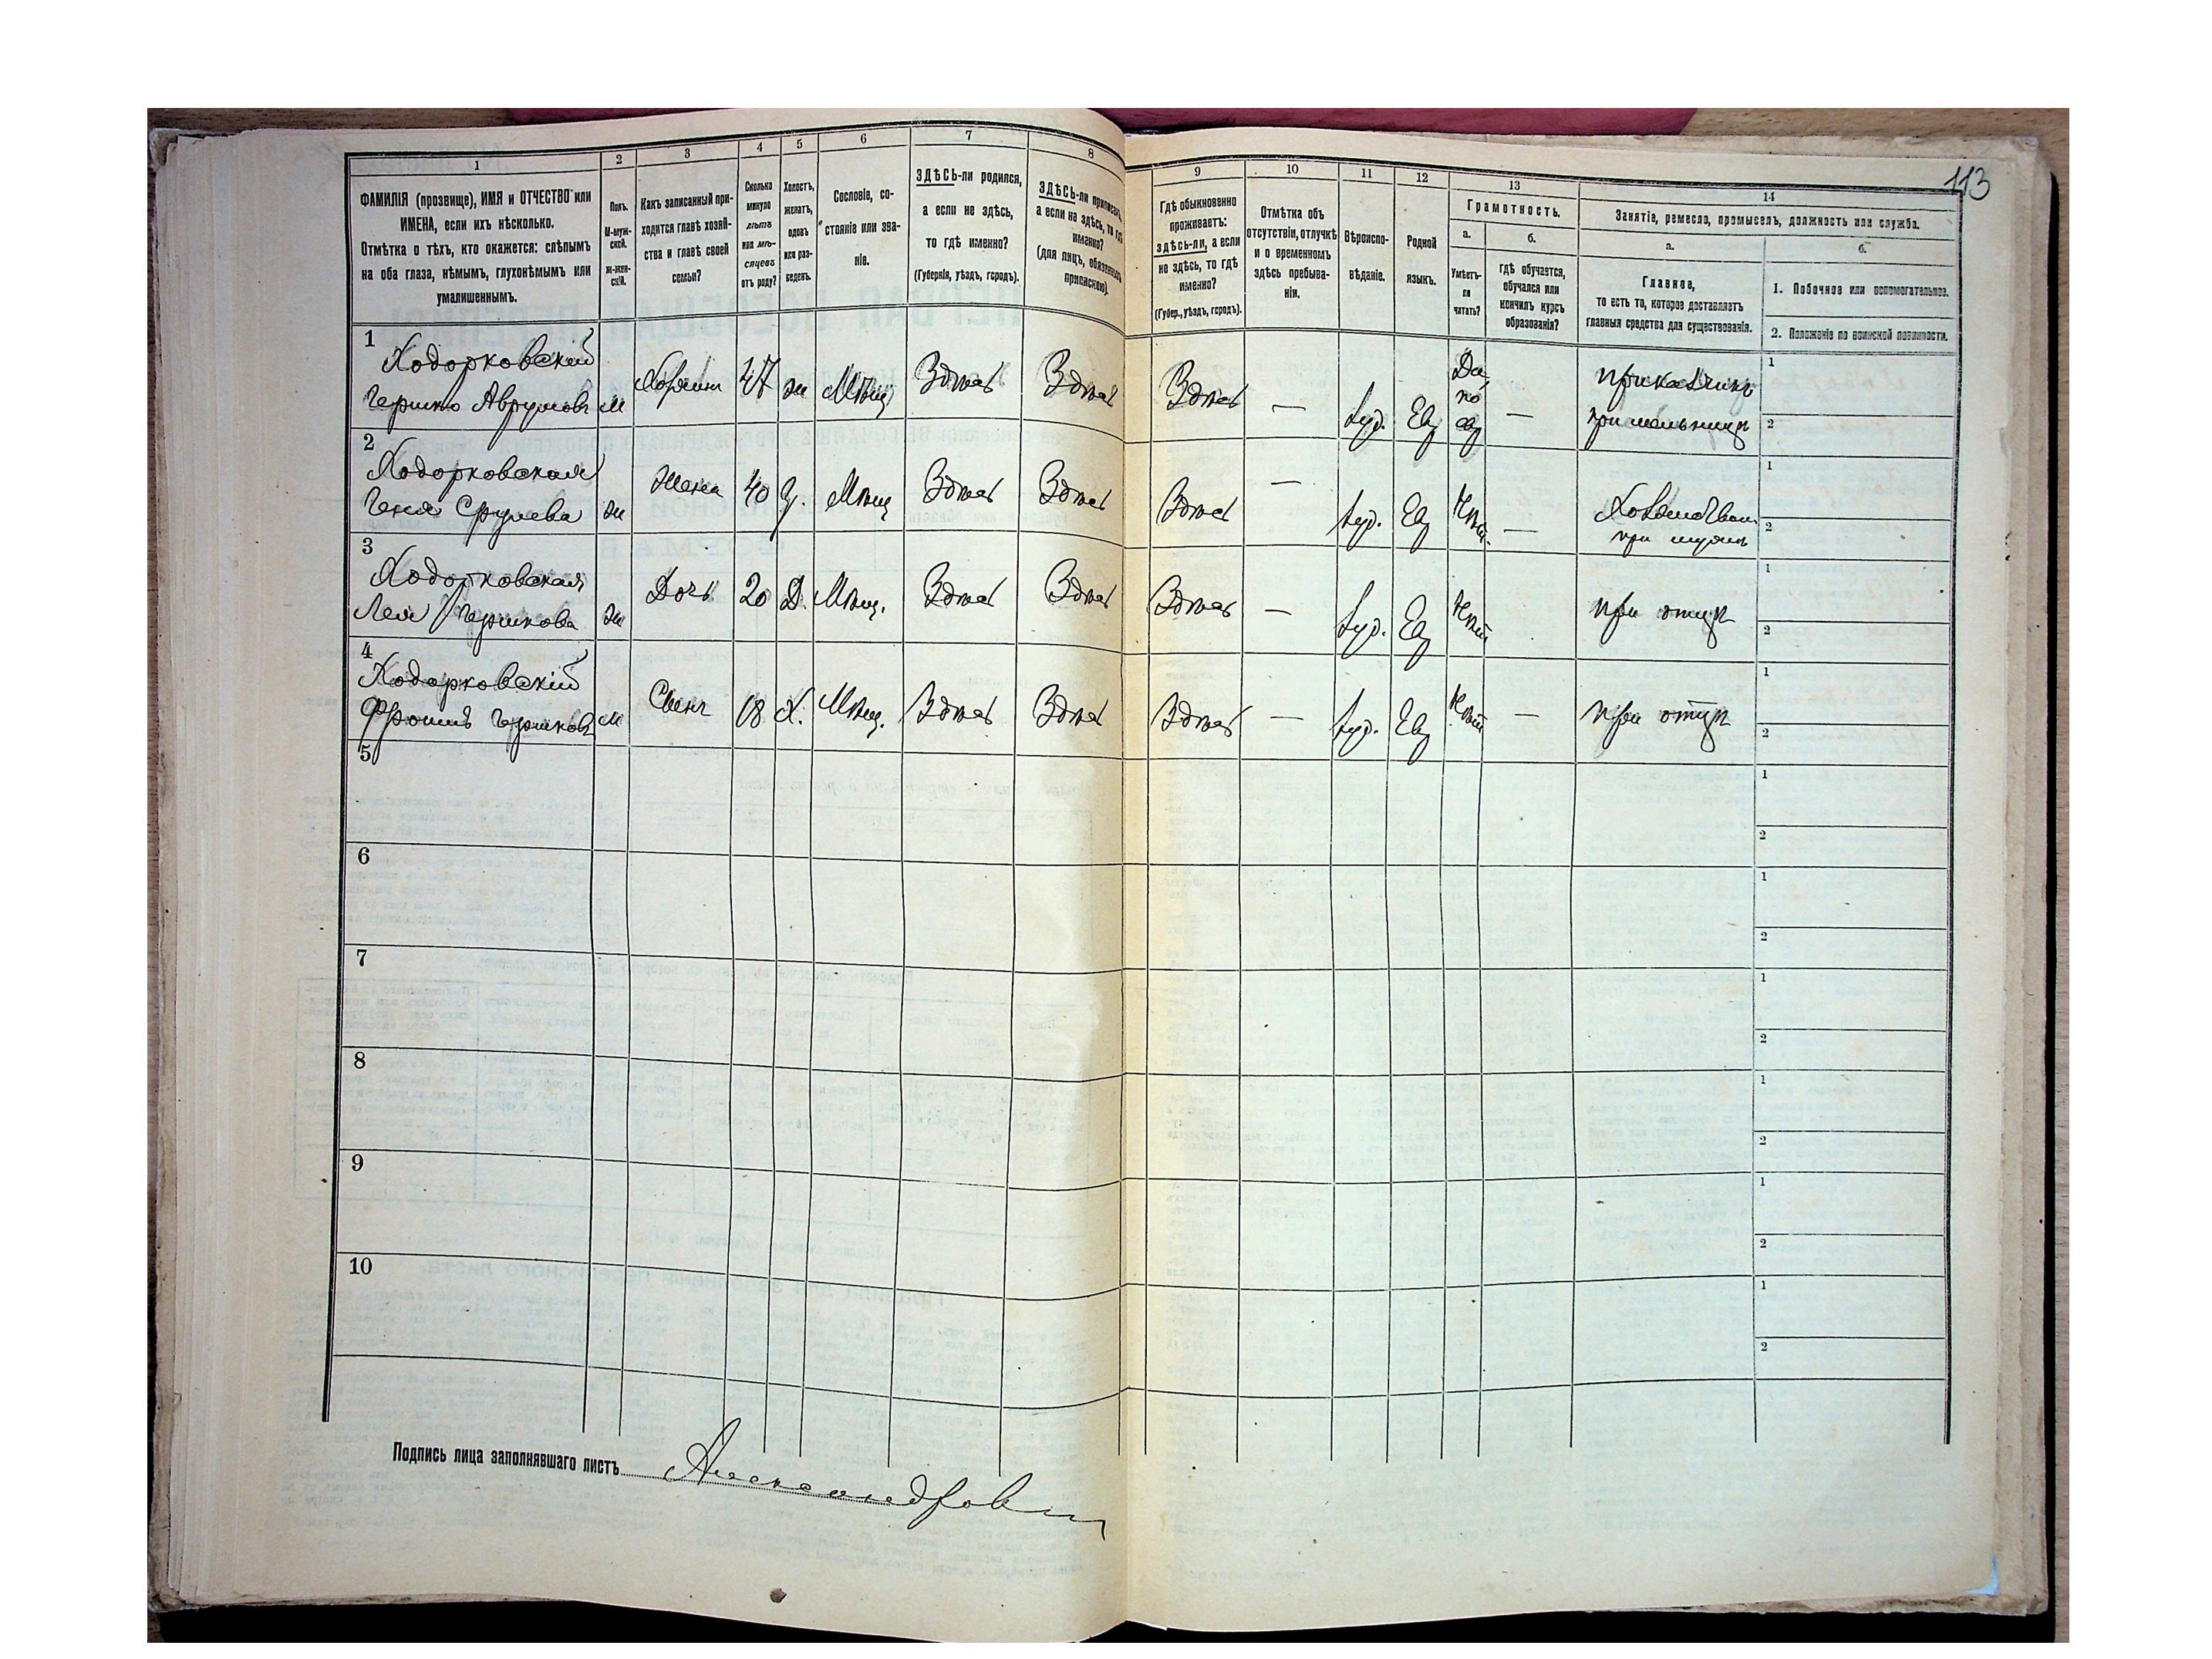 113
1
2
3
4
5
6
7
8
9
10
11
12
13
14
ФАМИЛІЯ (прозвище), ИМЯ и ОТЧЕСТВО или
ИМЕНА, если ихъ нѣсколько.
Отмѣтка о тѣхъ, кто окажется: слѣпымъ
на оба глаза, нѣмымъ, глухонѣмымъ или
умалишеннымъ.
Полъ.
М-муж-
ской.
ж-жен-
скій.
Какъ записанный при-
ходится главѣ хозяй-
ства и главѣ своей
семьи?
Сколько
минуло
лѣтъ
или мѣ-
сяцевъ
отъ роду?
Холостъ,
женатъ,
вдовъ
или раз-
веденъ.
Сословіе, со-
стояніе или зва-
ніе.
ЗДѢСЬ-ли родился,
а если не здѣсь,
то гдѣ именно?
(Губернія, уѣздъ, городъ).
ЗДѢСЬ-ли приписанъ,
а если не здѣсь, то гдѣ
именно?
(для лицъ, обязанныхъ
припискою).
Гдѣ обыкновенно
проживаетъ:
здѣсь-ли, а если
не здѣсь, то гдѣ
именно?
(Губер., уѣздъ, городъ).
Отмѣтка объ
отсутствіи, отлучкѣ
и о временномъ
здѣсь пребыва-
ніи.
Вѣроиспо-
вѣданіе.
Родной
языкъ.
Грамотность.
а.
Умѣетъ-
ли
читать?
б.
гдѣ обучается,
обучался или
кончилъ курсъ
образованія?
Занятіе, ремесло, промыселъ, должность или служба.
а.
Главное,
то есть то, которое доставляетъ
главныя средства для существованія.
б.
1. Побочное или вспомогательное.
2. Положеніе по воинской повинности.
1
Ходорковскій
Гершко Аврумовъ
М
Хозяинъ
47
ж
Мѣщ
Здѣсь
Здѣсь
Здѣсь
—
Іуд.
Ев
Да,
по
ев
—
приказчикъ
при мельницѣ
1
2
2
Ходорковская
Срулева
ж
Жена
40
З.
Мѣщ
Здѣсь
Здѣсь
Здѣсь
—
Іуд.
Ев
Нѣт.
—
при мужѣ
1
2
3
Ходорковская
Лея Гершкова
ж
Дочь
20
Д.
Мѣщ.
Здѣсь
Здѣсь
Здѣсь
—
Іуд.
Ев
Нѣт
при отцѣ
1
2
4
Ходорковскій
Фроимъ Гершковъ
М
Сынъ
18
Х.
Мѣщ.
Здѣсь
Здѣсь
Здѣсь
—
Іуд.
Ев
Нѣт
—
при отцѣ
1
2
5
1
2
6
1
2
7
1
2
8
1
2
9
1
2
10
1
2
Подпись лица заполнявшаго листъ